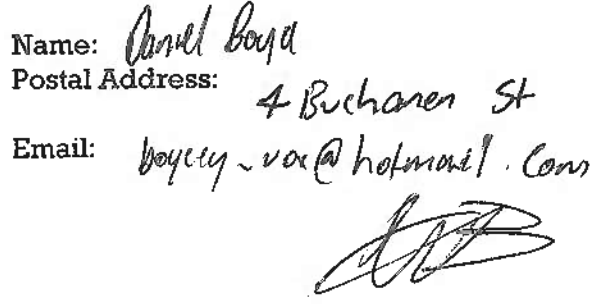 Name: Daniel Boyd
Postal Address:
4 Buchanan St
Email: @hotmail.com